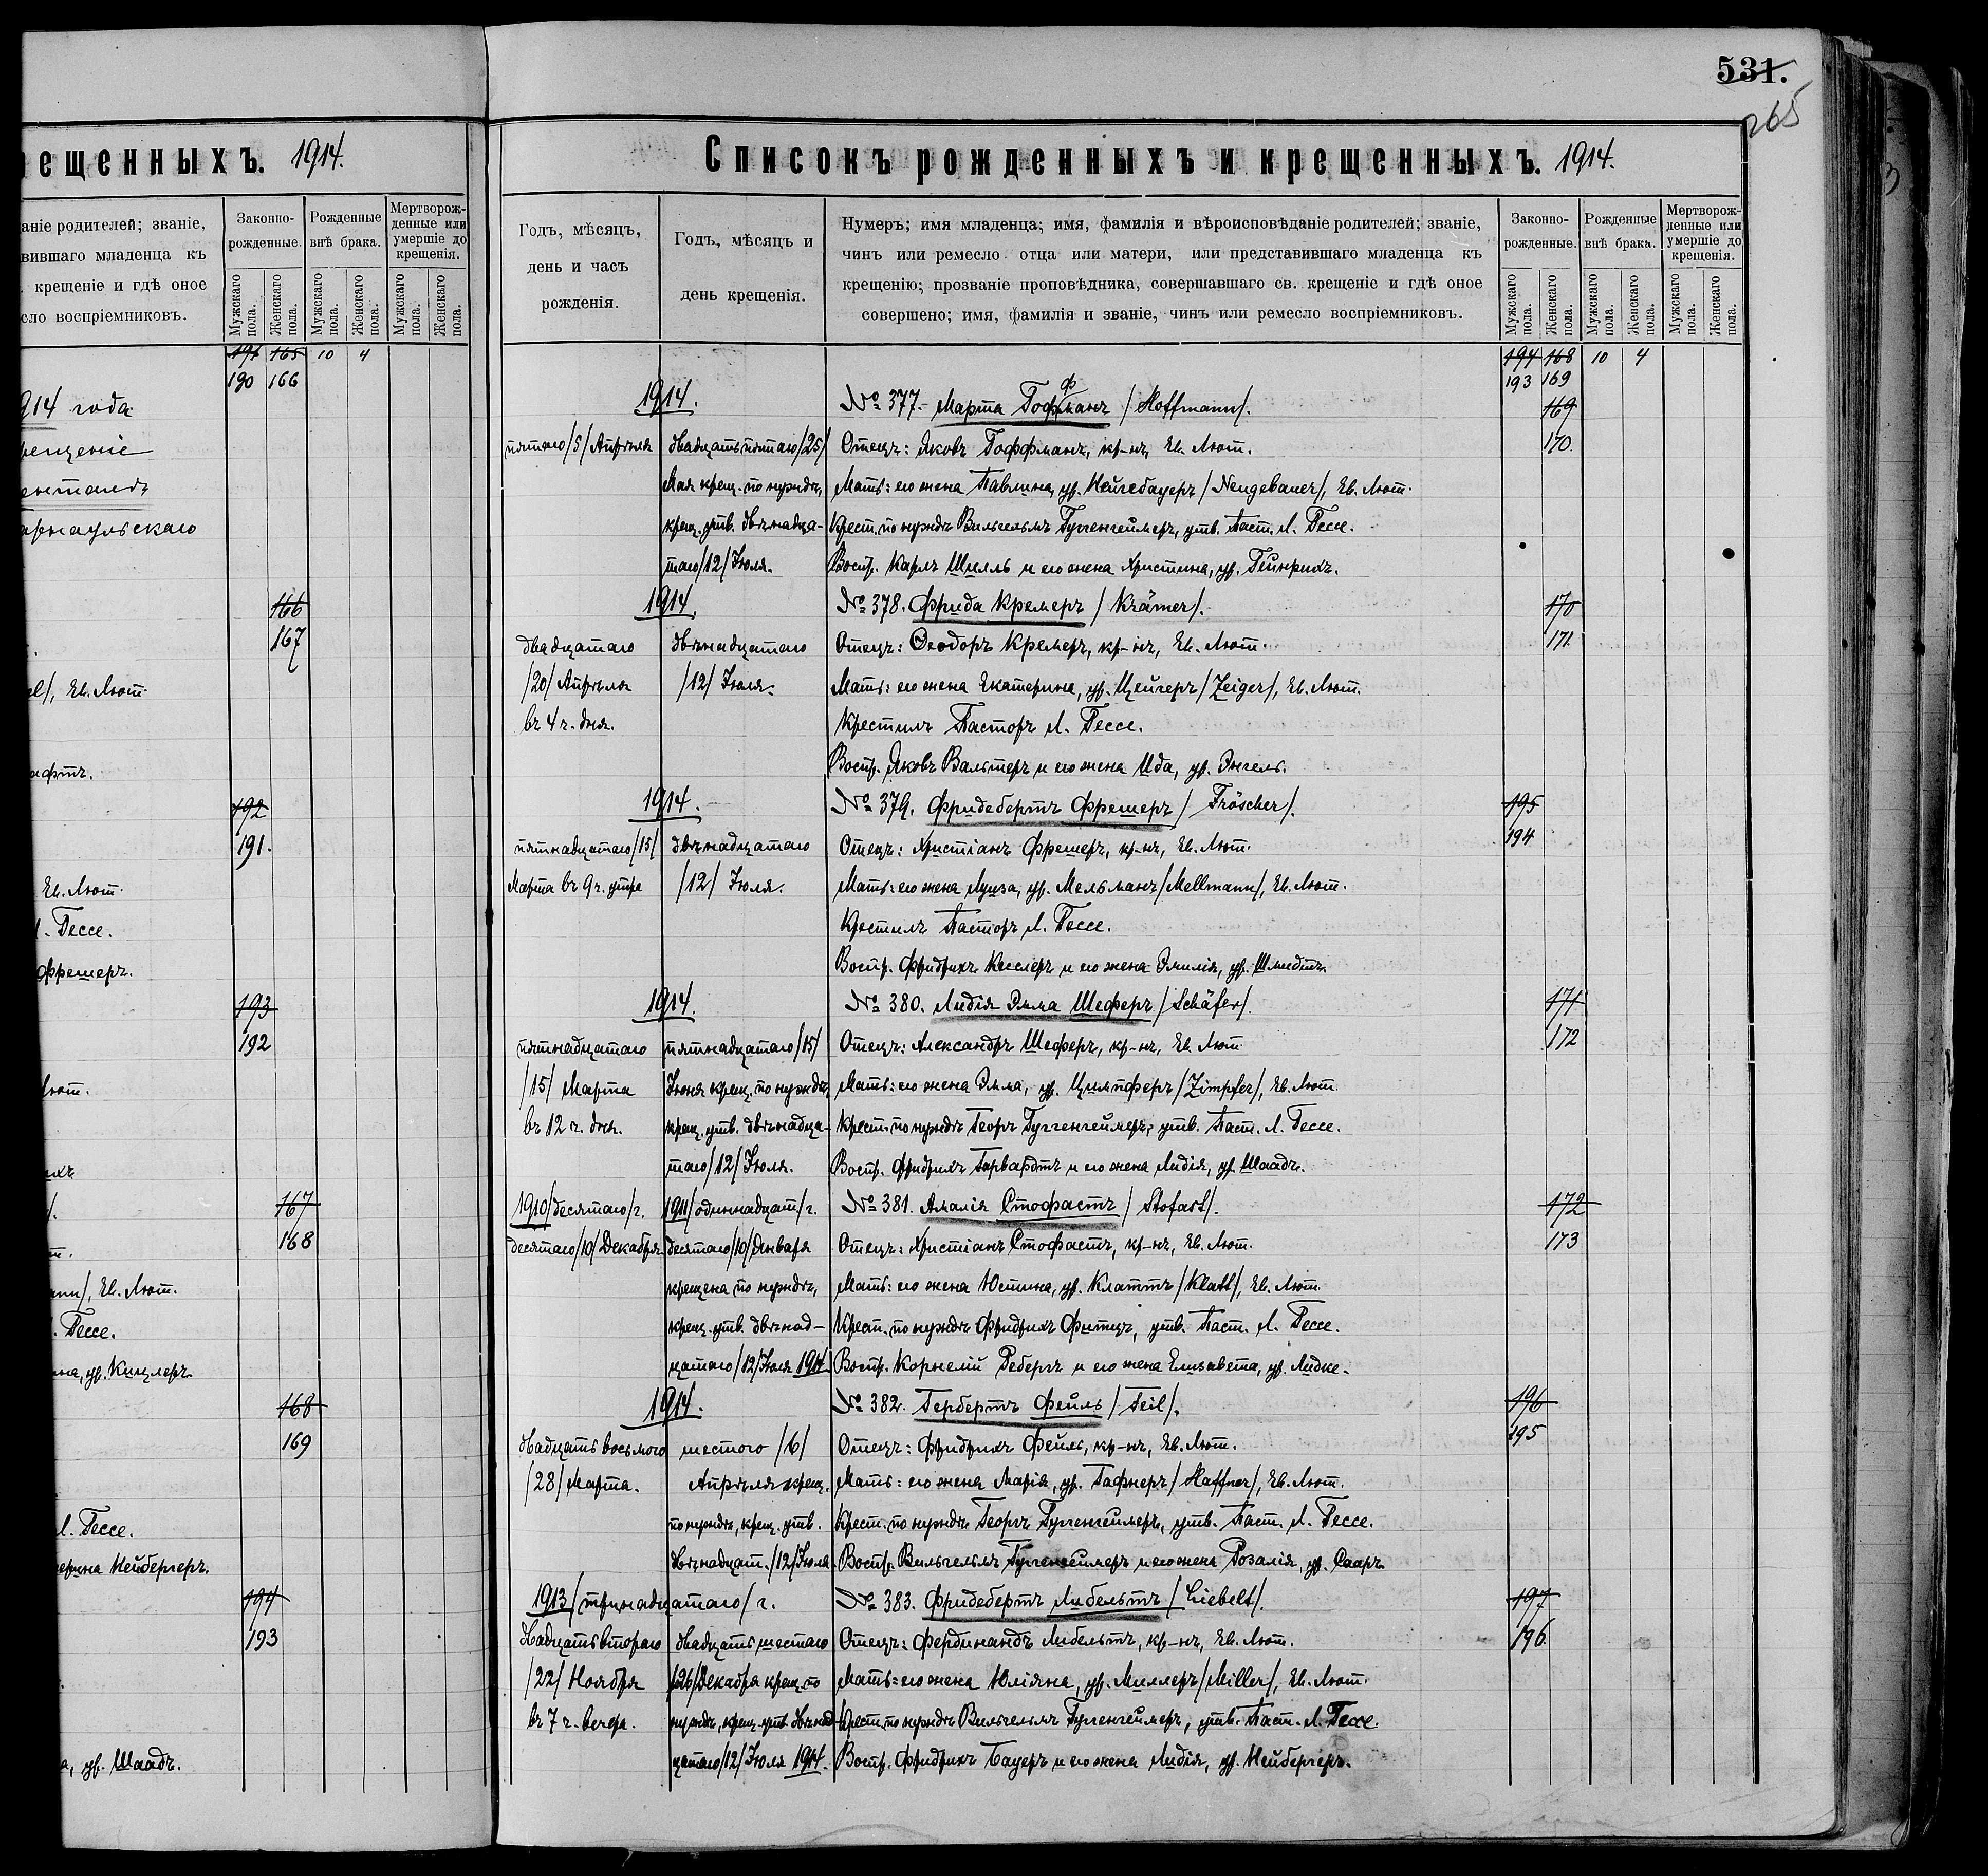 531.
265
рещенныхъ. 1914.
аніе родителей; званіе,
вившаго младенца къ
. крещеніе и гдѣ оное
сло воспріемниковъ.
Законно-
рожденные.
Рожденные
внѣ брака.
Мертворож-
денные или
умершіе до
крещенія.
Мужскаго пола.
Женскаго пола.
Мужскаго пола.
Женскаго пола.
Мужскаго пола.
Женскаго пола.
191 165 10 4
190 166
914 года
рещеніе
арнаульскаго
166
167
el/, Ев. Лют.
192
191.
Ев. Лют.
Л. Гессе.
Фрешеръ.
193
192
Лют.
167
168
ann/, Ев. Лют.
. Гессе.
на, ур. Кицлеръ
168
169
Л. Гессе.
ерина Нейбергеръ.
194
193
а, ур. Шаадъ.
Списокъ рожденныхъ и крещенныхъ. 1914.
Годъ, мѣсяцъ,
день и часъ
рожденія.
Годъ, мѣсяцъ и
день крещенія.
Нумеръ; имя младенца; имя, фамилія и вѣроисповѣданіе родителей; званіе,
чинъ или ремесло отца или матери, или представившаго младенца къ
крещенію; прозваніе проповѣдника, совершавшаго св. крещеніе и гдѣ оное
совершено; имя, фамилія и званіе, чинъ или ремесло воспріемниковъ.
Законно-
рожденные.
Рожденные
внѣ брака.
Мертворож-
денные или
умершіе до
крещенія.
Мужскаго пола.
Женскаго пола.
Мужскаго пола.
Женскаго пола.
Мужскаго пола.
Женскаго пола.
194 168 10 4
193 169
1914. № 377. Марта Гоффманъ /Hoffmann/. 169
пятаго /5/ Апрѣля двадцать пятаго /25/ Отецъ: Яковъ Гоффманъ, кр-нъ, Ев. Лют. 170.
Мая крещ. по нуждѣ, Мать: его жена Павлина, ур. Нейгебауеръ /Neugebauer/, Ев. Лют.
крещ. утв. двѣнадца- Крест. по нуждѣ Вильгельмъ Гуггенгеймеръ, утв. Паст. Л. Гессе.
таго /12/ Іюля. Воспр. Карлъ Шилль и его жена Христина, ур. Гейнрихъ.
1914. № 378. Фрида Кремеръ /Krämer/. 170
двадцатаго двѣнадцатаго Отецъ: Ѳеодоръ Кремеръ, кр-нъ, Ев. Лют. 171.
/20/ Апрѣля /12/ Іюля. Мать: его жена Екатерина, ур. Цейгеръ /Zeiger/, Ев. Лют.
въ 4 ч. дня. Крестилъ Пасторъ Л. Гессе.
Воспр. Яковъ Вальтеръ и его жена Ида, ур. Энгель.
1914. № 379. Фридебертъ Фрешеръ /Fröscher/. 195
пятнадцатаго /15/ двѣнадцатаго Отецъ: Христіанъ Фрешеръ, кр-нъ, Ев. Лют. 194
Марта въ 9 ч. утра /12/ Іюля. Мать: его жена Луиза, ур. Мельманъ /Mellmann/, Ев. Лют.
Крестилъ Пасторъ Л. Гессе.
Воспр. Фридрихъ Кесслеръ и его жена Эмилія, ур. Шмидтъ.
1914. № 380. Лидія Эмма Шеферъ /Schäfer/. 171
пятнадцатаго пятнадцатаго /15/ Отецъ: Александръ Шеферъ, кр-нъ, Ев. Лют. 172
/15/ Марта Іюня крещ. по нуждѣ, Мать: его жена Эмма, ур. Цимпферъ /Zimpfer/, Ев. Лют.
въ 12 ч. дня. крещ. утв. двѣнадца- Крест. по нуждѣ Георгъ Гуггенгеймеръ, утв. Паст. Л. Гессе.
таго /12/ Іюля. Воспр. Фридрихъ Гарвардтъ и его жена Лидія, ур. Шаадъ.
1910 /десятаго/ г. 1911 /одиннадцат/ г. № 381. Амалія Стофастъ /Stofast/. 172
десятаго /10/ Декабря десятаго /10/ Января Отецъ: Христіанъ Стофастъ, кр-нъ, Ев. Лют. 173
крещена по нуждѣ, Мать: его жена Юстина, ур. Клаттъ /Klatt/, Ев. Лют.
крещ. утв. двѣнад- Крест. по нуждѣ Фридрихъ Фитцъ, утв. Паст. Л. Гессе.
цатаго /12/ Іюля 1914. Воспр. Корнелій Ребергъ и его жена Елизавета, ур. Лидке.
1914. № 382. Гербертъ Фейль /Feil/. 196
двадцать восьмого шестого /6/ Отецъ: Фридрихъ Фейль, кр-нъ, Ев. Лют. 195
/28/ Марта. Апрѣля крещ. Мать: его жена Марія, ур. Гафнеръ /Haffner/, Ев. Лют.
по нуждѣ, крещ. утв. Крест. по нуждѣ Георгъ Гуггенгеймеръ, утв. Паст. Л. Гессе.
двѣнадцат. /12/ Іюля. Воспр. Вильгельмъ Гуггенгеймеръ и его жена Розалія, ур. Сааръ.
1913 /тринадцатаго/ г. № 383. Фридебертъ Либельтъ /Liebelt/. 197
двадцать второго двадцать шестаго Отецъ: Фердинандъ Либельтъ, кр-нъ, Ев. Лют. 196.
/22/ Ноября /26/ Декабря крещ. по Мать: его жена Юліяна, ур. Миллеръ /Miller/, Ев. Лют.
въ 7 ч. вечера. нуждѣ, крещ. утв. двѣнад- Крест. по нуждѣ Вильгельмъ Гуггенгеймеръ, утв. Паст. Л. Гессе.
цатаго /12/ Іюля 1914. Воспр. Фридрихъ Бауеръ и его жена Лидія, ур. Нейбергеръ.